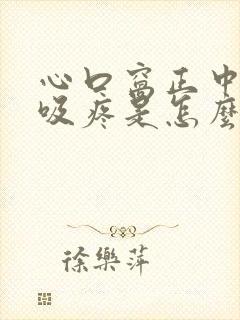 心口窩正中
吸疼是怎麼
徐樂萍